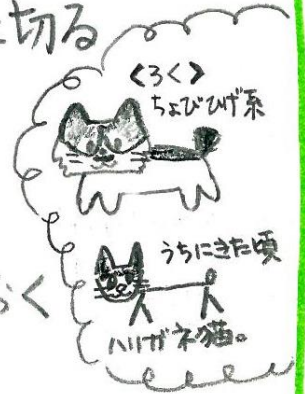 切る
<ろく>
ちょびひげ系
うちにきた頃
く
ハリガネ猫。